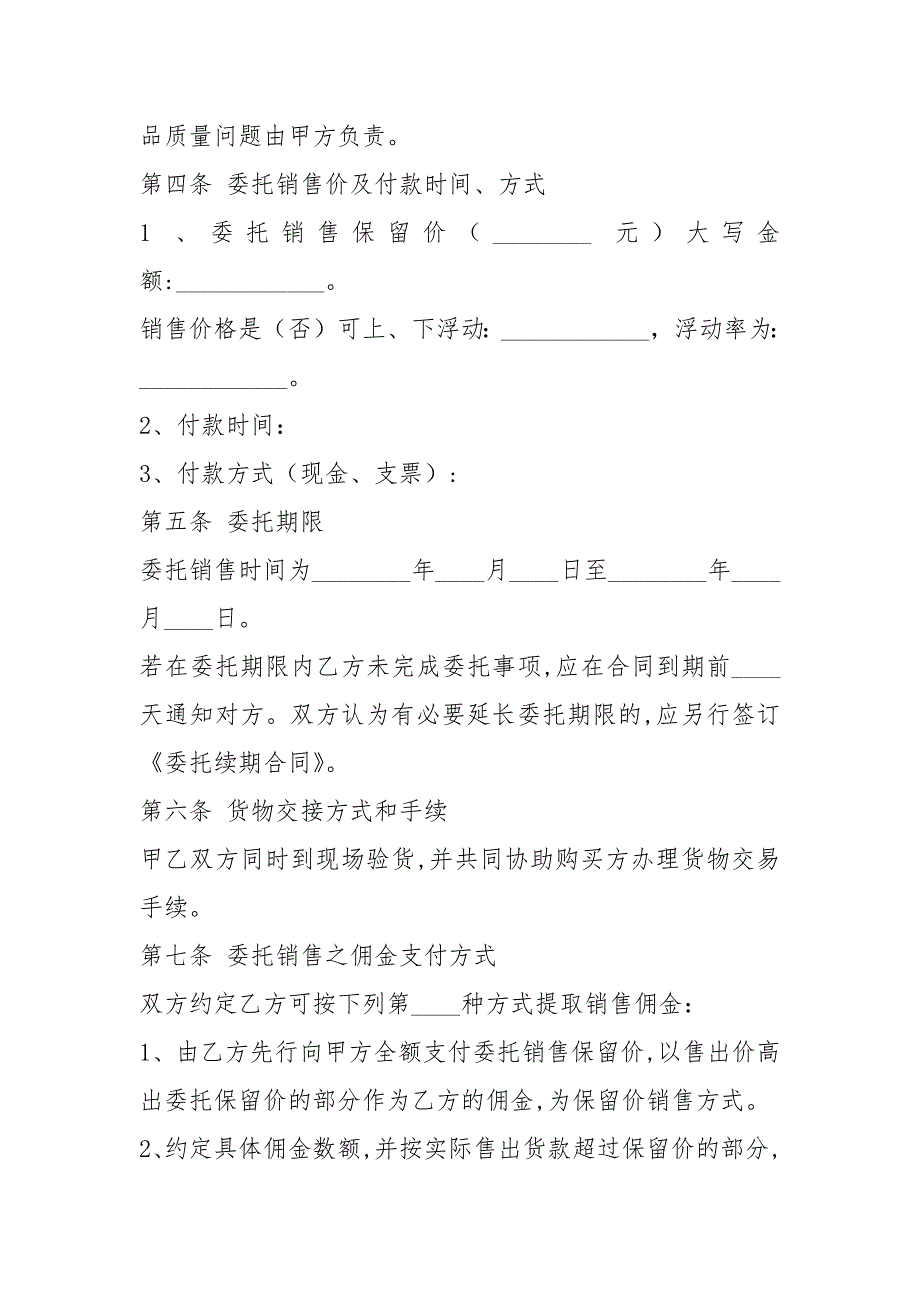 品质量问题由甲方负责。
第四条 委托销售价及付款时间、方式
1 、委托销售保留价（________ 元）大写金
额:____________。
销售价格是（否）可上、下浮动：____________，浮动率为：
____________。
2、付款时间：
3、付款方式（现金、支票）：
第五条 委托期限
委托销售时间为________年____月____日至________年____
月____日。
若在委托期限内乙方未完成委托事项,应在合同到期前____
天通知对方。双方认为有必要延长委托期限的,应另行签订
《委托续期合同》。
第六条 货物交接方式和手续
甲乙双方同时到现场验货,并共同协助购买方办理货物交易
手续。
第七条 委托销售之佣金支付方式
双方约定乙方可按下列第____种方式提取销售佣金：
1、由乙方先行向甲方全额支付委托销售保留价,以售出价高
出委托保留价的部分作为乙方的佣金,为保留价销售方式。
2、约定具体佣金数额,并按实际售出货款超过保留价的部分,